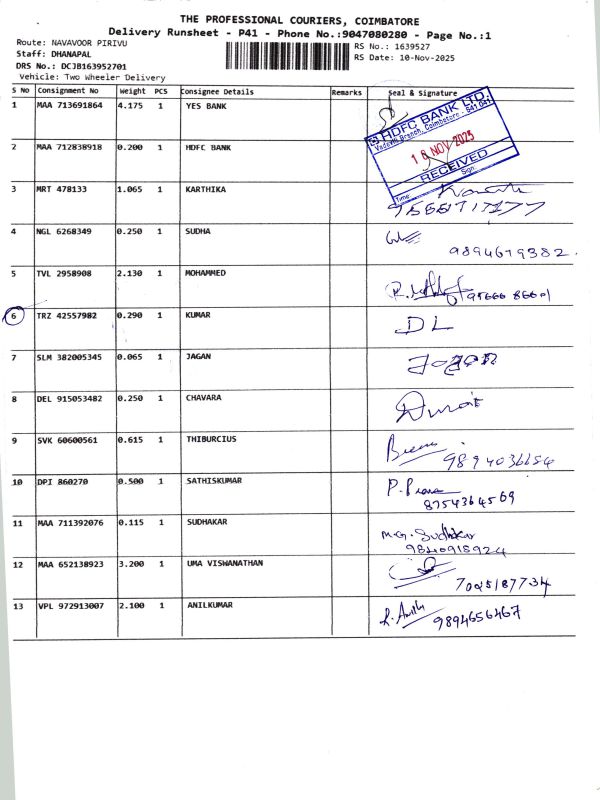 THE PROFESSIONAL COURIERS, COIMBATORE
Delivery Runsheet - P41 - Phone No.:9047080280 - Page No.:1
Route: NAVAVOOR PIRIVU
RS No.: 1639527
Staff: DHANAPAL
RS Date: 10-Nov-2025
DRS No.: DCJB163952701
Vehicle: Two Wheeler Delivery
S No Consignment No Weight PCS Consignee Details Remarks Seal & Signature
1 MAA 713691864 4.175 1 YES BANK
HDFC BANK LTD.
Vadavalli Branch, Coimbatore - 641 041
RECEIVED
Time Sign
2 MAA 712838918 0.200 1 HDFC BANK
3 MRT 478133 1.065 1 KARTHIKA
4 NGL 6268349 0.250 1 SUDHA
9894679382
5 TVL 2958908 2.130 1 MOHAMMED
6 TRZ 42557982 0.290 1 KUMAR DL
7 SLM 382005345 0.065 1 JAGAN
8 DEL 915053482 0.250 1 CHAVARA
9 SVK 60600561 0.615 1 THIBURCIUS
9894036654
10 DPI 860270 0.500 1 SATHISKUMAR
8754364569
11 MAA 711392076 0.115 1 SUDHAKAR M.G. Sudhakar
9840918924
12 MAA 652138923 3.200 1 UMA VISWANATHAN
7025187734
13 VPL 972913007 2.100 1 ANILKUMAR
9894656467